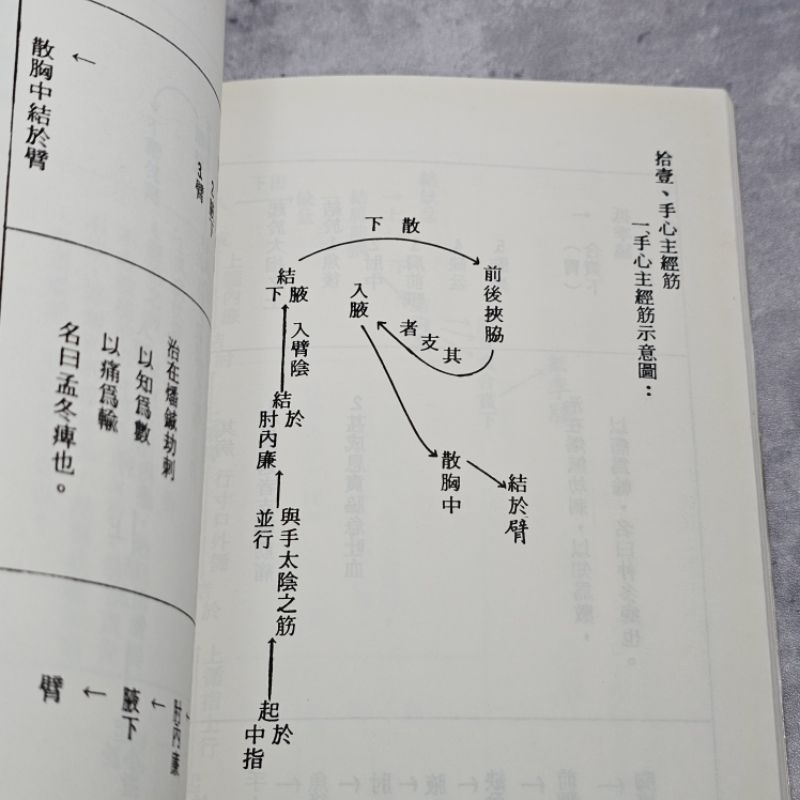 拾壹、手心主經筋
一、手心主經筋示意圖：
起於中指
與手太陰之筋並行
結於肘內廉
入臂陰
結腋下
散下
前後挾脇
其支者
入腋
散胸中
結於臂
治在燔鍼劫刺
以知為數
以痛為輸
名曰孟冬痺也。
3.臂
←散胸中結於臂
肘內廉
←腋下
←臂